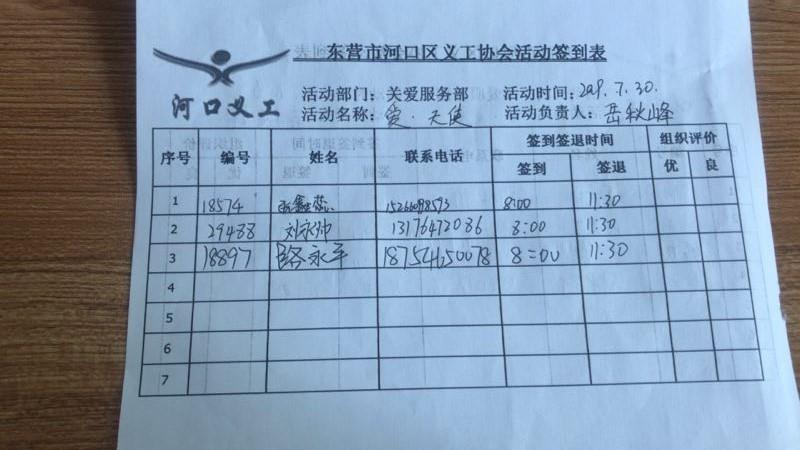 东营市河口区义工协会活动签到表
河口义工
活动部门：关爱服务部 活动时间：2019.7.30.
活动名称：爱·天使 活动负责人：岳秋峰
序号 编号 姓名 联系电话 签到签退时间 组织评价
签到 签退 优 良
1 18574 8:00 11:30
2 29488 刘永帅 13176472086 8:00 11:30
3 18897 路永平 18754250078 8:00 11:30
4
5
6
7